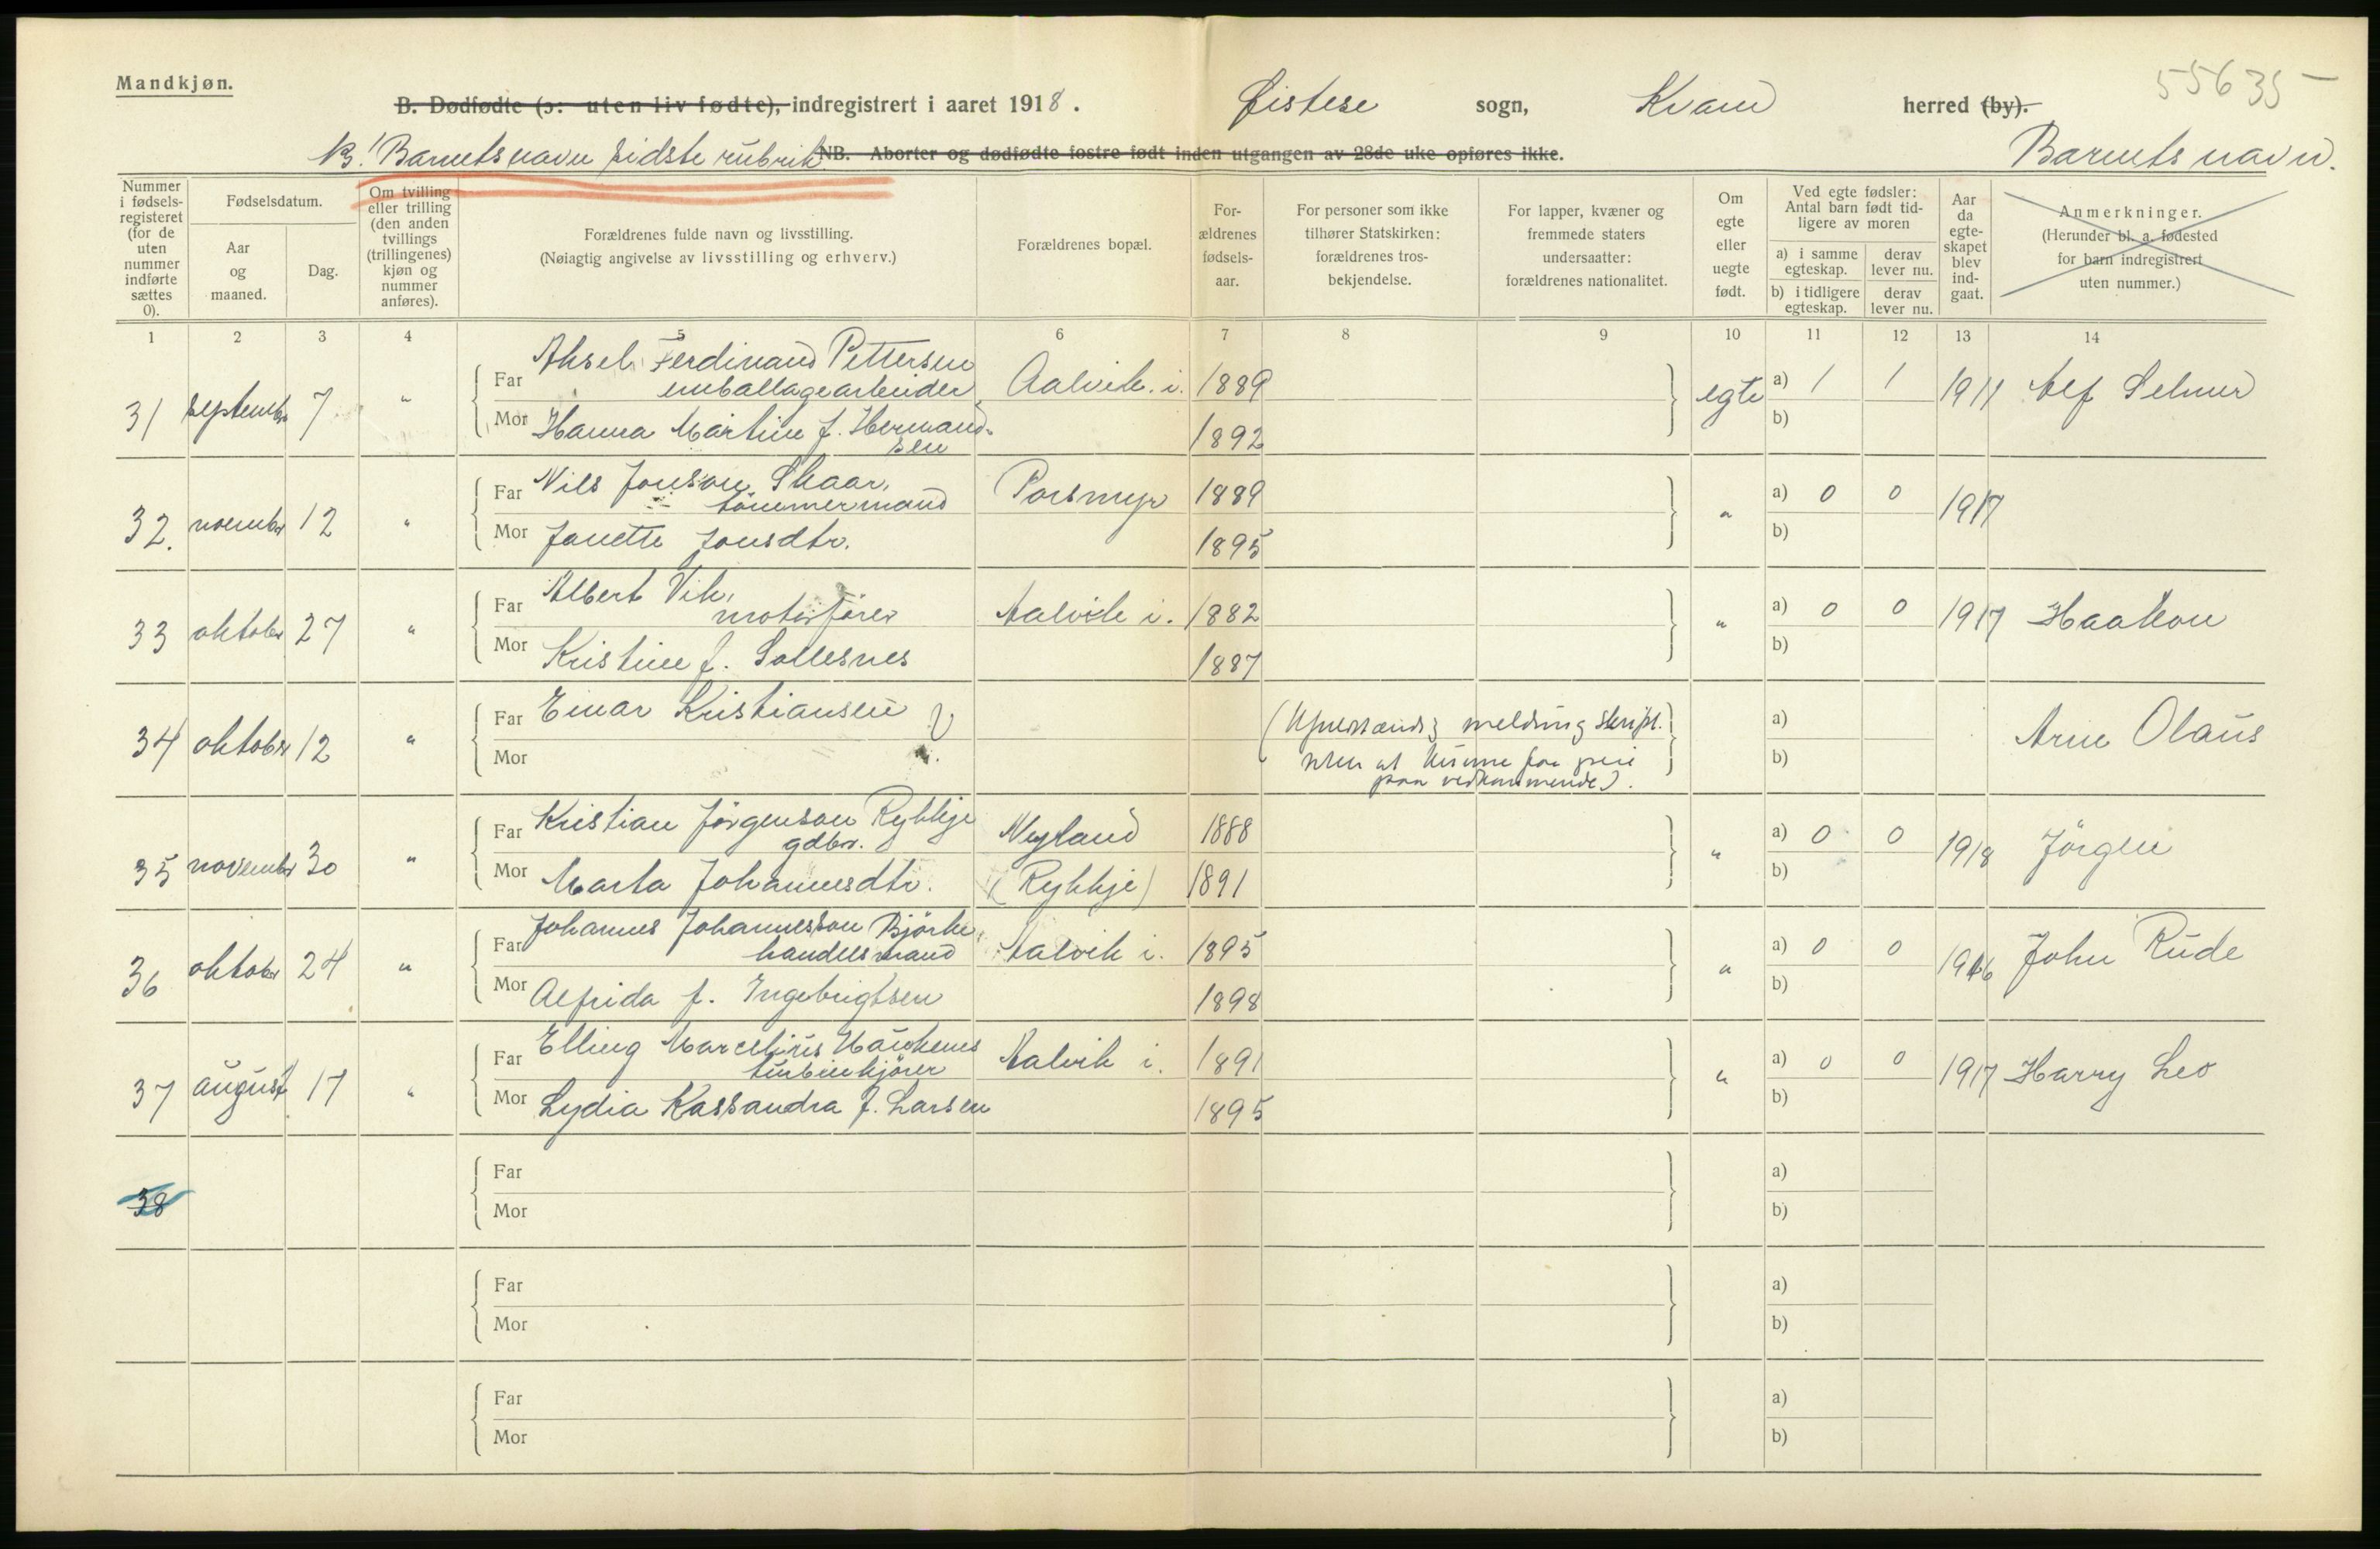 Mandkjøn.
55635
B. Dødfødte (ɔ: uten liv fødte), indregistrert i aaret 1918. Øistese sogn, Kvam herred (by).
NB! Barnets navn sidste rubrik. NB. Aborter og dødfødte fostre født inden utgangen av 28de uke opføres ikke. Barnets navn.
Nummer i fødselsregisteret (for de uten nummer indførte sættes 0).
Fødselsdatum.
Aar og maaned.
Dag.
Om tvilling eller trilling (den anden tvillings (trillingenes) kjøn og nummer anføres).
Forældrenes fulde navn og livsstilling.
(Nøiagtig angivelse av livsstilling og erhverv.)
Forældrenes bopæl.
Forældrenes fødselsaar.
For personer som ikke tilhører Statskirken: forældrenes trosbekjendelse.
For lapper, kvæner og fremmede staters undersaatter: forældrenes nationalitet.
Om egte eller uegte født.
Ved egte fødsler: Antal barn født tidligere av moren
a) i samme egteskap. derav lever nu.
b) i tidligere egteskap. derav lever nu.
Aar da egteskapet blev indgaat.
Anmerkninger.
(Herunder bl. a. fødested for barn indregistrert uten nummer.)
1 2 3 4 5 6 7 8 9 10 11 12 13 14
31 september 7 " Far Aksel Ferdinand Pettersen
emballagearbeider Aalvik i. 1889 egte a) 1 1 1911 Alf Selmer
Mor Hanna Martine f. Hermandsen 1892 b)
32. november 12 " Far Nils Jonson Skaar,
tömmermand Porsmyr 1889 " a) 0 0 1917
Mor Janette Jonsdtr. 1895 b)
33 oktober 27 " Far Albert Vik,
motorförer Aalvik i. 1882 " a) 0 0 1917 Haakon
Mor Kristine f. Sollesnes 1887 b)
34 oktober 12 " Far Einar Kristiansen (Ufuldstændig melding skript. a) Arne Olaus
Mor uten at kunne faa greie b)
paa vedkommende).
35 november 30 " Far Kristian Jörgenson Rykkje
gdbr. Nyland 1888 " a) 0 0 1918 Jörgen
Mor Marta Johannesdtr. (Rykkje) 1891 b)
36 oktober 24 " Far Johannes Johannesson Björke,
handelsmand Aalvik i. 1895 " a) 0 0 1916 John Rude
Mor Alfrida f. Ingebrigtsen 1898 b)
37 august 17 " Far Elling Marcelius Haukenes
turbinkjörer Aalvik i. 1891 " a) 0 0 1917 Harry Leo
Mor Lydia Kassandra f. Larsen 1895 b)
38 Far a)
Mor b)
Far a)
Mor b)
Far a)
Mor b)